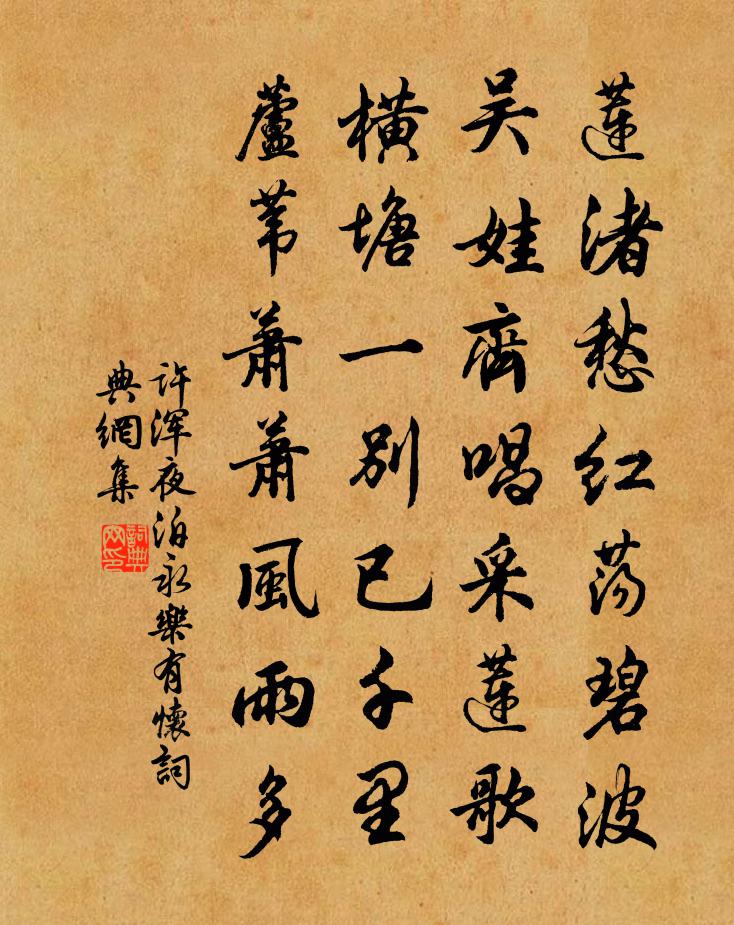 蓮渚愁紅蕩碧波
吳娃齊唱采蓮歌
橫塘一別已千里
蘆葦蕭蕭風雨多
許渾夜泊永樂有懷詞
典網集
詞典
网印